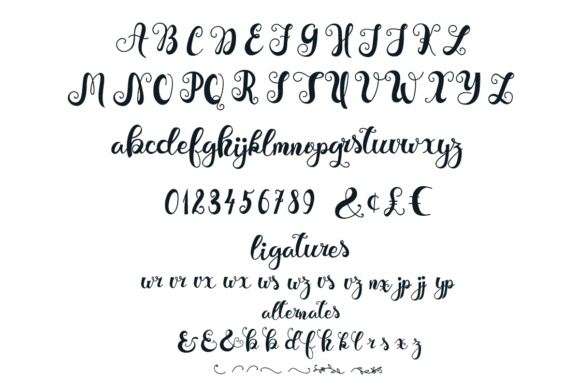 A B C D E F G H I J K L
M N O P Q R S T U V W X Y Z
abcdefghijklmnopqrstuvwxyz
0123456789 & ¢ £ €
ligatures
wr vr vx wx ws wz vs vz nx jp jj yp
alternates
& E & b b d f h k l r s x z